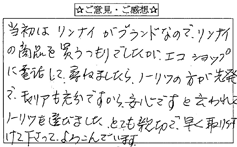 ☆ご意見・ご感想☆
当初はリンナイがブランドなので、リンナイ
の商品を買うつもりでしたが、エコショップ
に電話して、尋ねましたら、ノーリツの方が先発
で、もしアも充分ですから、安心ですと云われて
ノーリツを選びました。とても親切で、早く取り付
けて下さって、よろこんでいます。